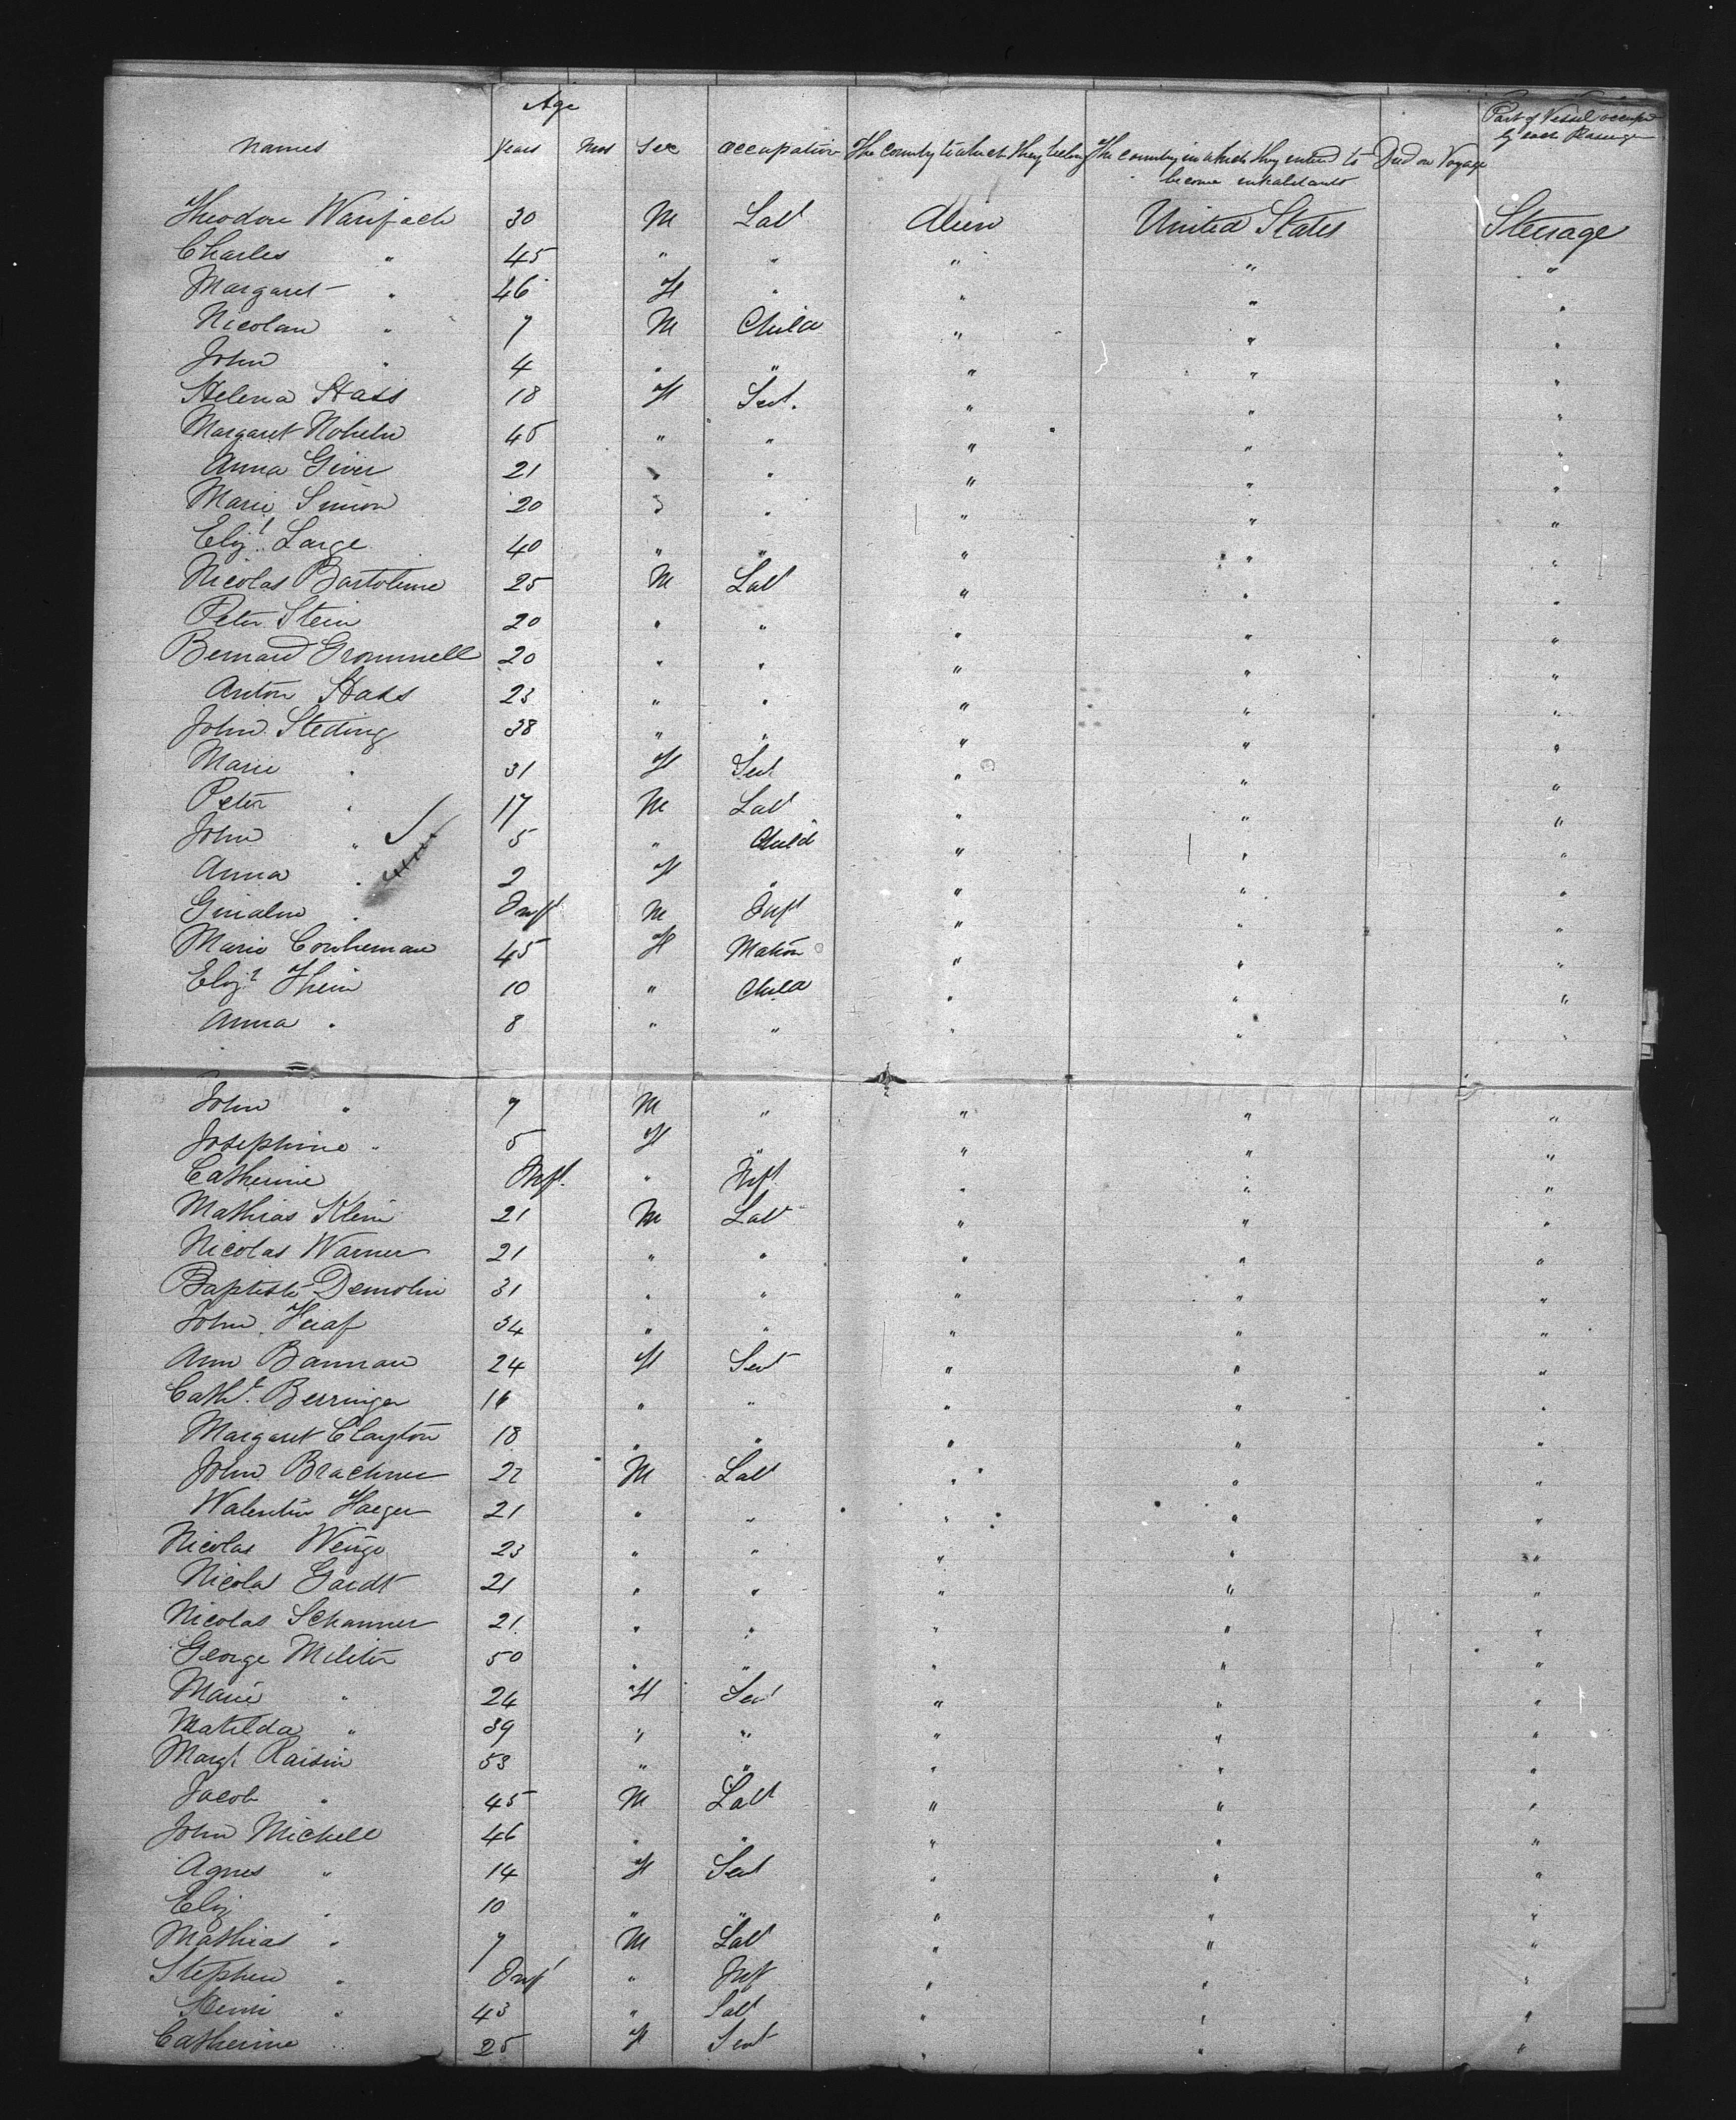 Age
Part of Vessel occupd by each Passenger
Names Years Mos Sex Occupation The Country to which they belong The country in which they intend to become inhabitants Died on Voyage
Theodore 30 M Labr Alien United States Steerage
Charles " 45 " " " " "
Margaret " 46 F " " " "
Nicolau " 7 M Child " " "
John " 4 " " " " "
Helena Hass 18 F Sert. " " "
Margaret 45 " " " " "
Anna Giver 21 " " " " "
Marie Simon 20 " " " " "
Elizt Large 40 " " " " "
Nicolas Bartolime 25 M Labr " " "
Peter Stein 20 " " " " "
Bernard Grommell 20 " " " " "
Anton Hass 23 " " " " "
John Steding 38 " " " " "
Marie " 31 F Sert " " "
Peter " 17 M Labr " " "
John " 5 " Child " " "
Anna " 2 F " " " "
" Inft M Inft " " "
Marie 45 F Matron " " "
Elizt Thein 10 " Child " " "
Anna " 8 " " " " "
John " 7 M " " " "
Josephine " 5 F " " " "
Catherine Inft. " Inft " " "
Mathias Klein 21 M Labr " " "
Nicolas Warner 21 " " " " "
Baptiste Demolin 31 " " " " "
John 34 " " " " "
Ann Bannan 24 F Sert " " "
Catht. Berringer 16 " " " " "
Margaret Clayton 18 " " " " "
John Brachner 22 M Labr " " "
Walentin Haeger 21 " " " " "
Nicolas Weuge 23 " " " " "
Nicolas Gardt 21 " " " " "
Nicolas Schanner 21 " " " " "
George Militer 50 " " " " "
Marie " 24 F Sert " " "
Matilda " 39 " " " " "
Margt. Raisin 53 " " " " "
Jacob " 45 M Labr " " "
John Michell 46 " " " " "
Agnes " 14 F Sert " " "
Eliz " 10 " " " " "
Mathias " 7 M Labr " " "
Stephen " Inft " Inft " " "
Henri " 43 " Labr " " "
Catherine " 25 F Sert " " "